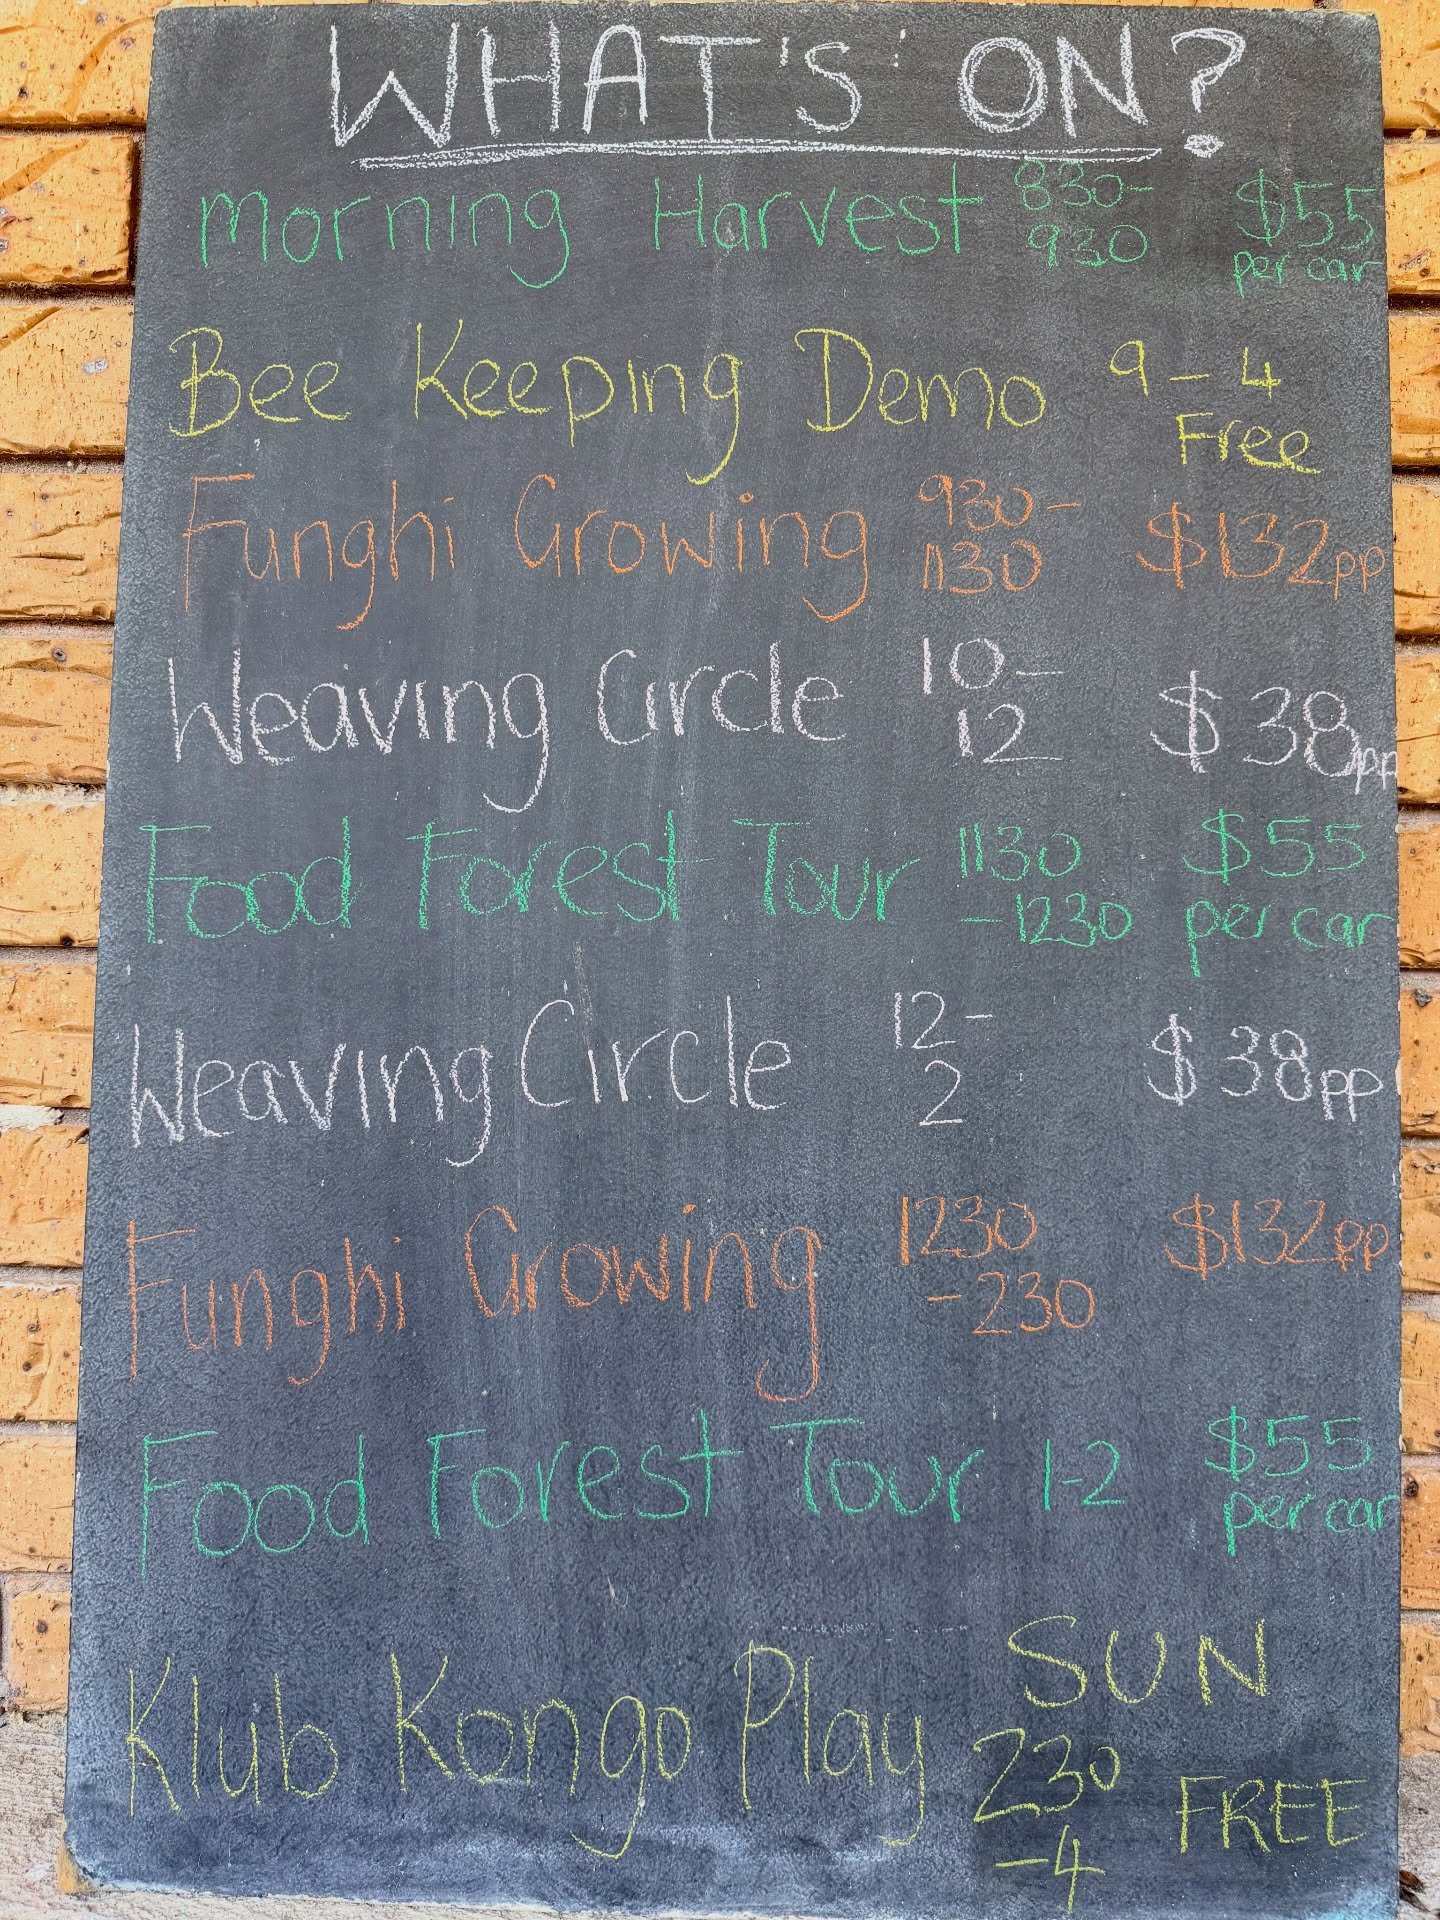 WHAT'S ON?
Morning Harvest 830- $55
930 per car
Bee Keeping Demo 9-4
Free
Funghi Growing 930- $132pp
1130
Weaving Circle 10- $38pp
12
Food Forest Tour 1130 $55
-1230 per car
Weaving Circle 12- $38pp
2
Funghi Growing 1230 $132pp
-230
Food Forest Tour 1-2 $55
per car
Klub Kongo Play SUN
230 FREE
-4